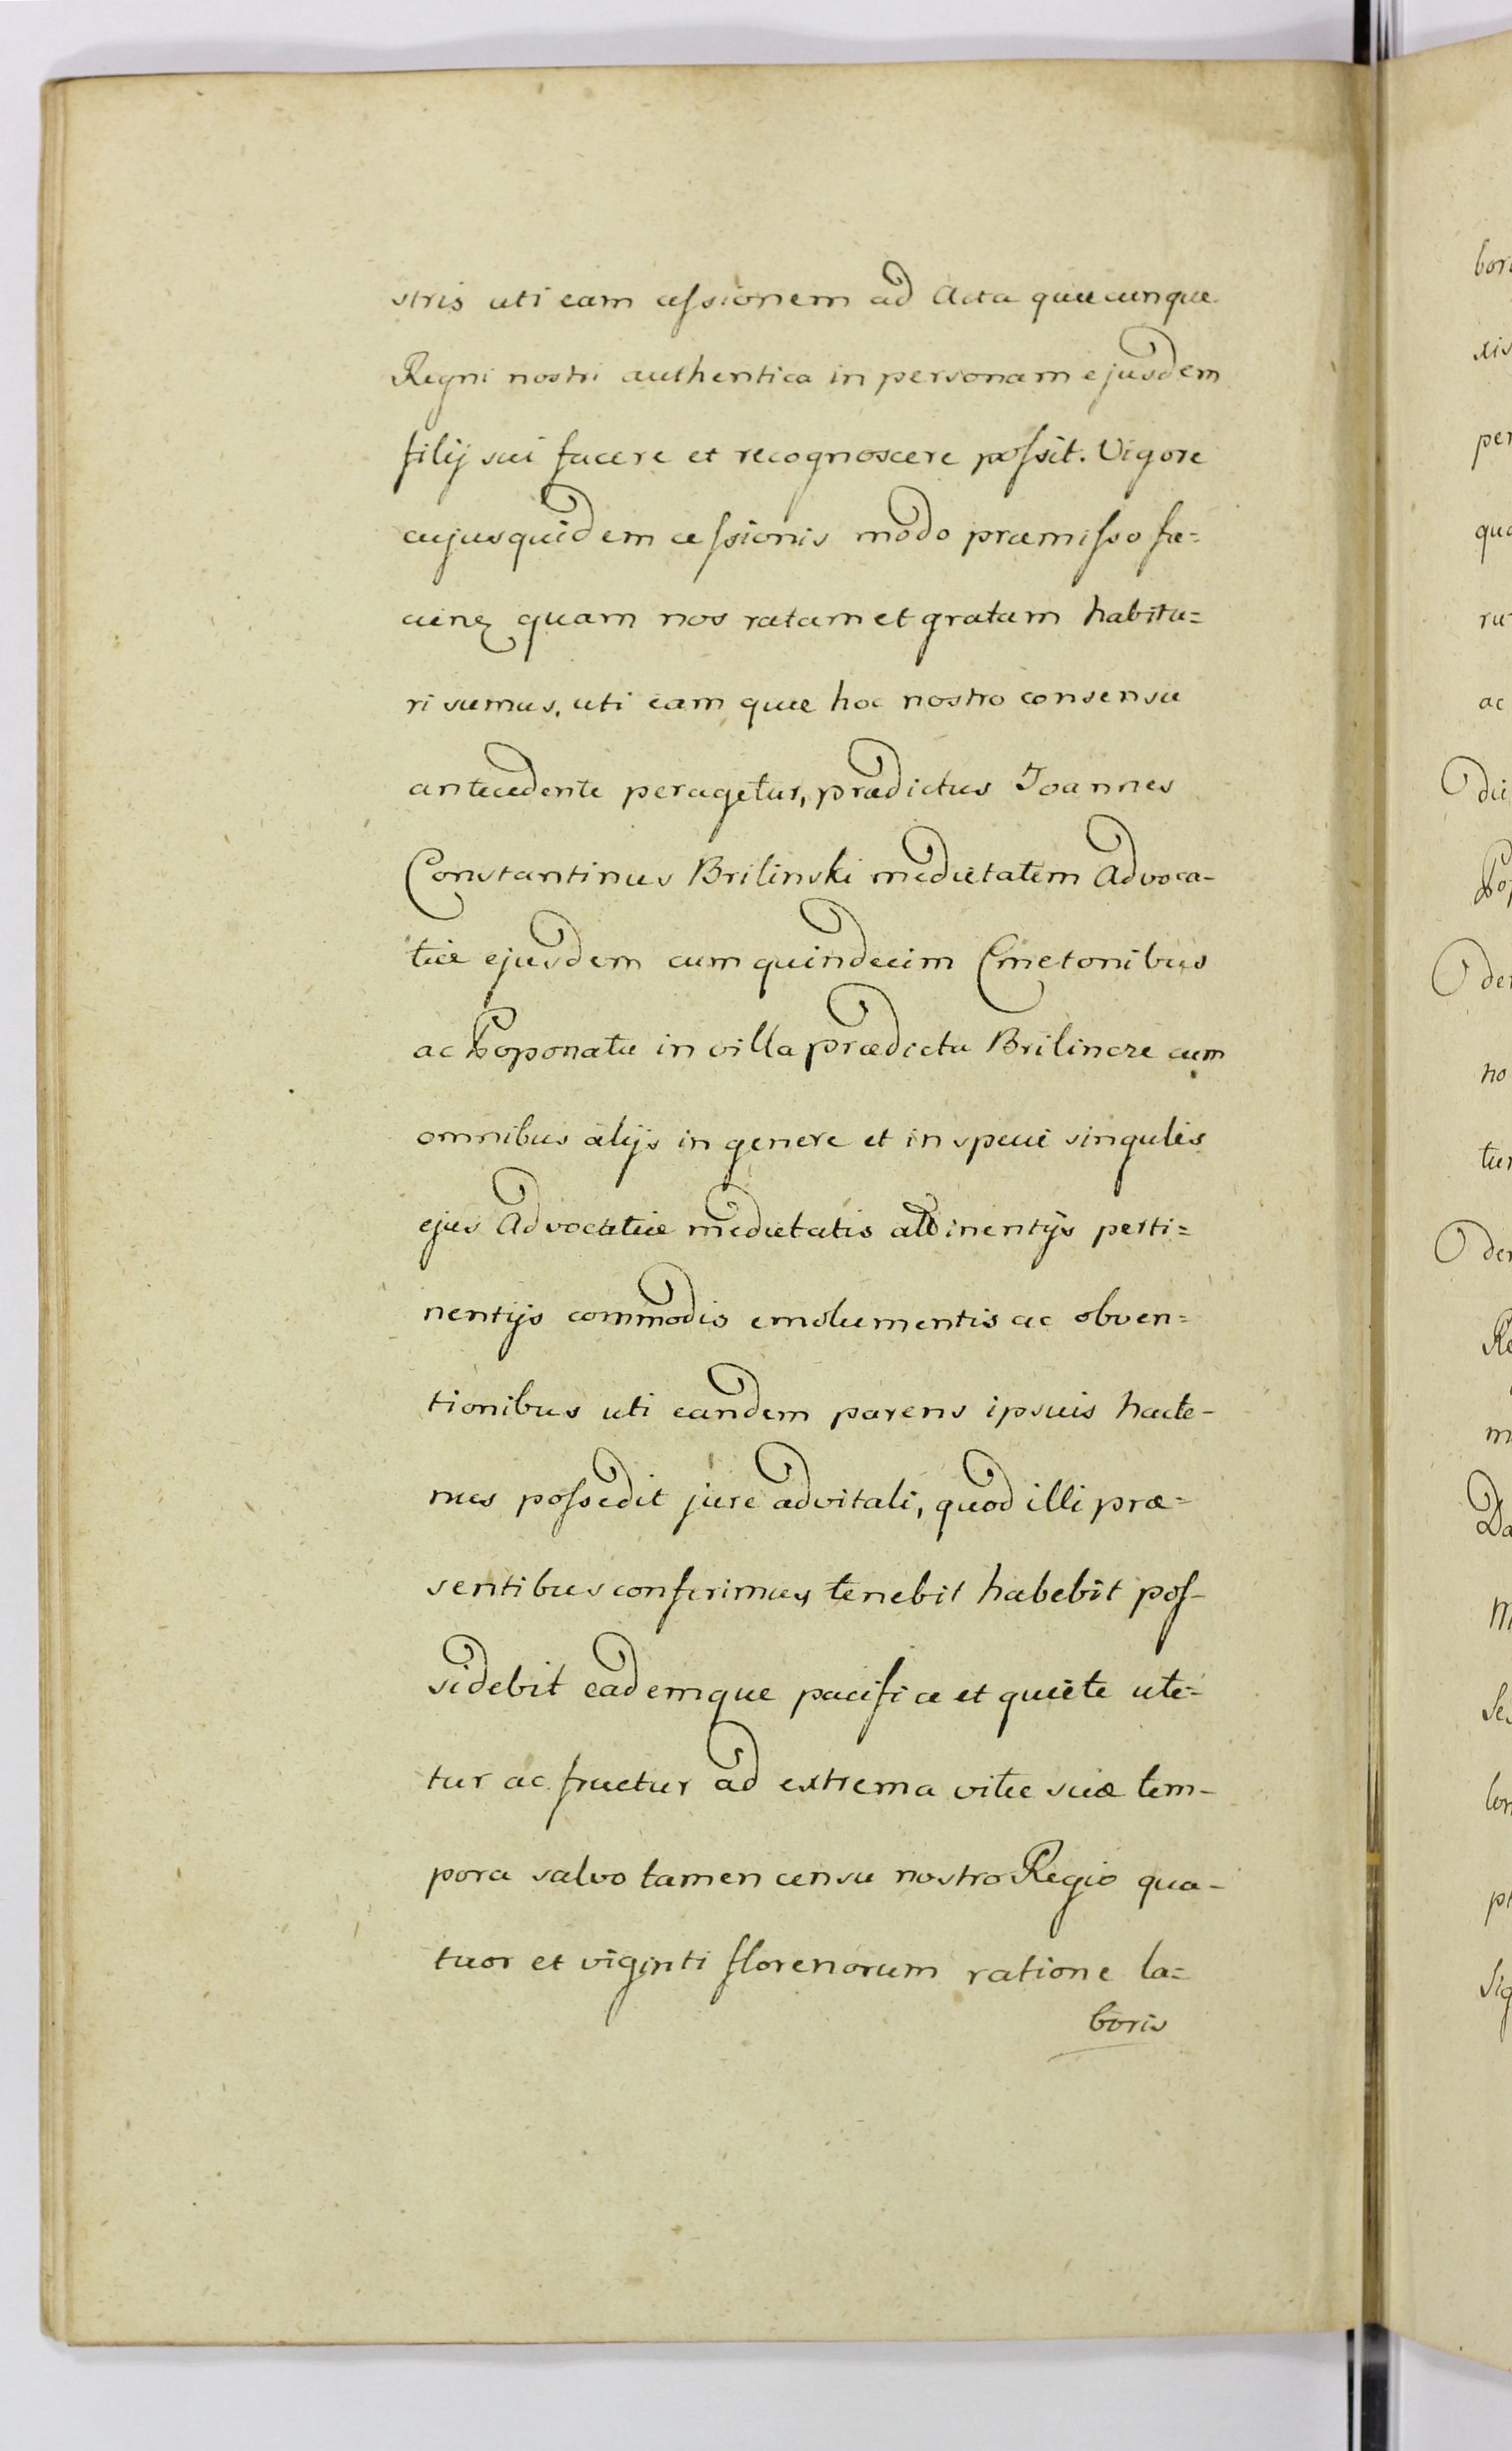 stris uti eam cessionem ad Acta quæcunque
Regni nostri authentica in personam ejusdem
filij sui facere et recognoscere possit. Vigore
cujusquidem cessionis modo præmisso fa=
quam nos ratam et gratam habitu=
ri sumus, uti eam quæ hoc nostro consensu
antecedente peragetur, prædictus Joannes
Constantinus Brilinski medietatem Advoca-
tiæ ejusdem cum quindecim Cmetonibus
ac Poponatu in villa prædicta Brilincze cum
omnibus alijs in genere et in specie singulis
ejus Advocatiæ medietatis attinentijs perti=
nentijs commodis emolumentis ac obven=
tionibus uti eandem parens ipsius hacte-
nus possedit jure advitali, quod illi præ=
sentibus conferimus tenebit habebit pos-
sidebit eademque pacifice et quiete ute=
tur ac fruetur ad extrema vitæ suæ tem-
pora salvo tamen censu nostro Regio qua-
tuor et viginti florenorum ratione la=
boris